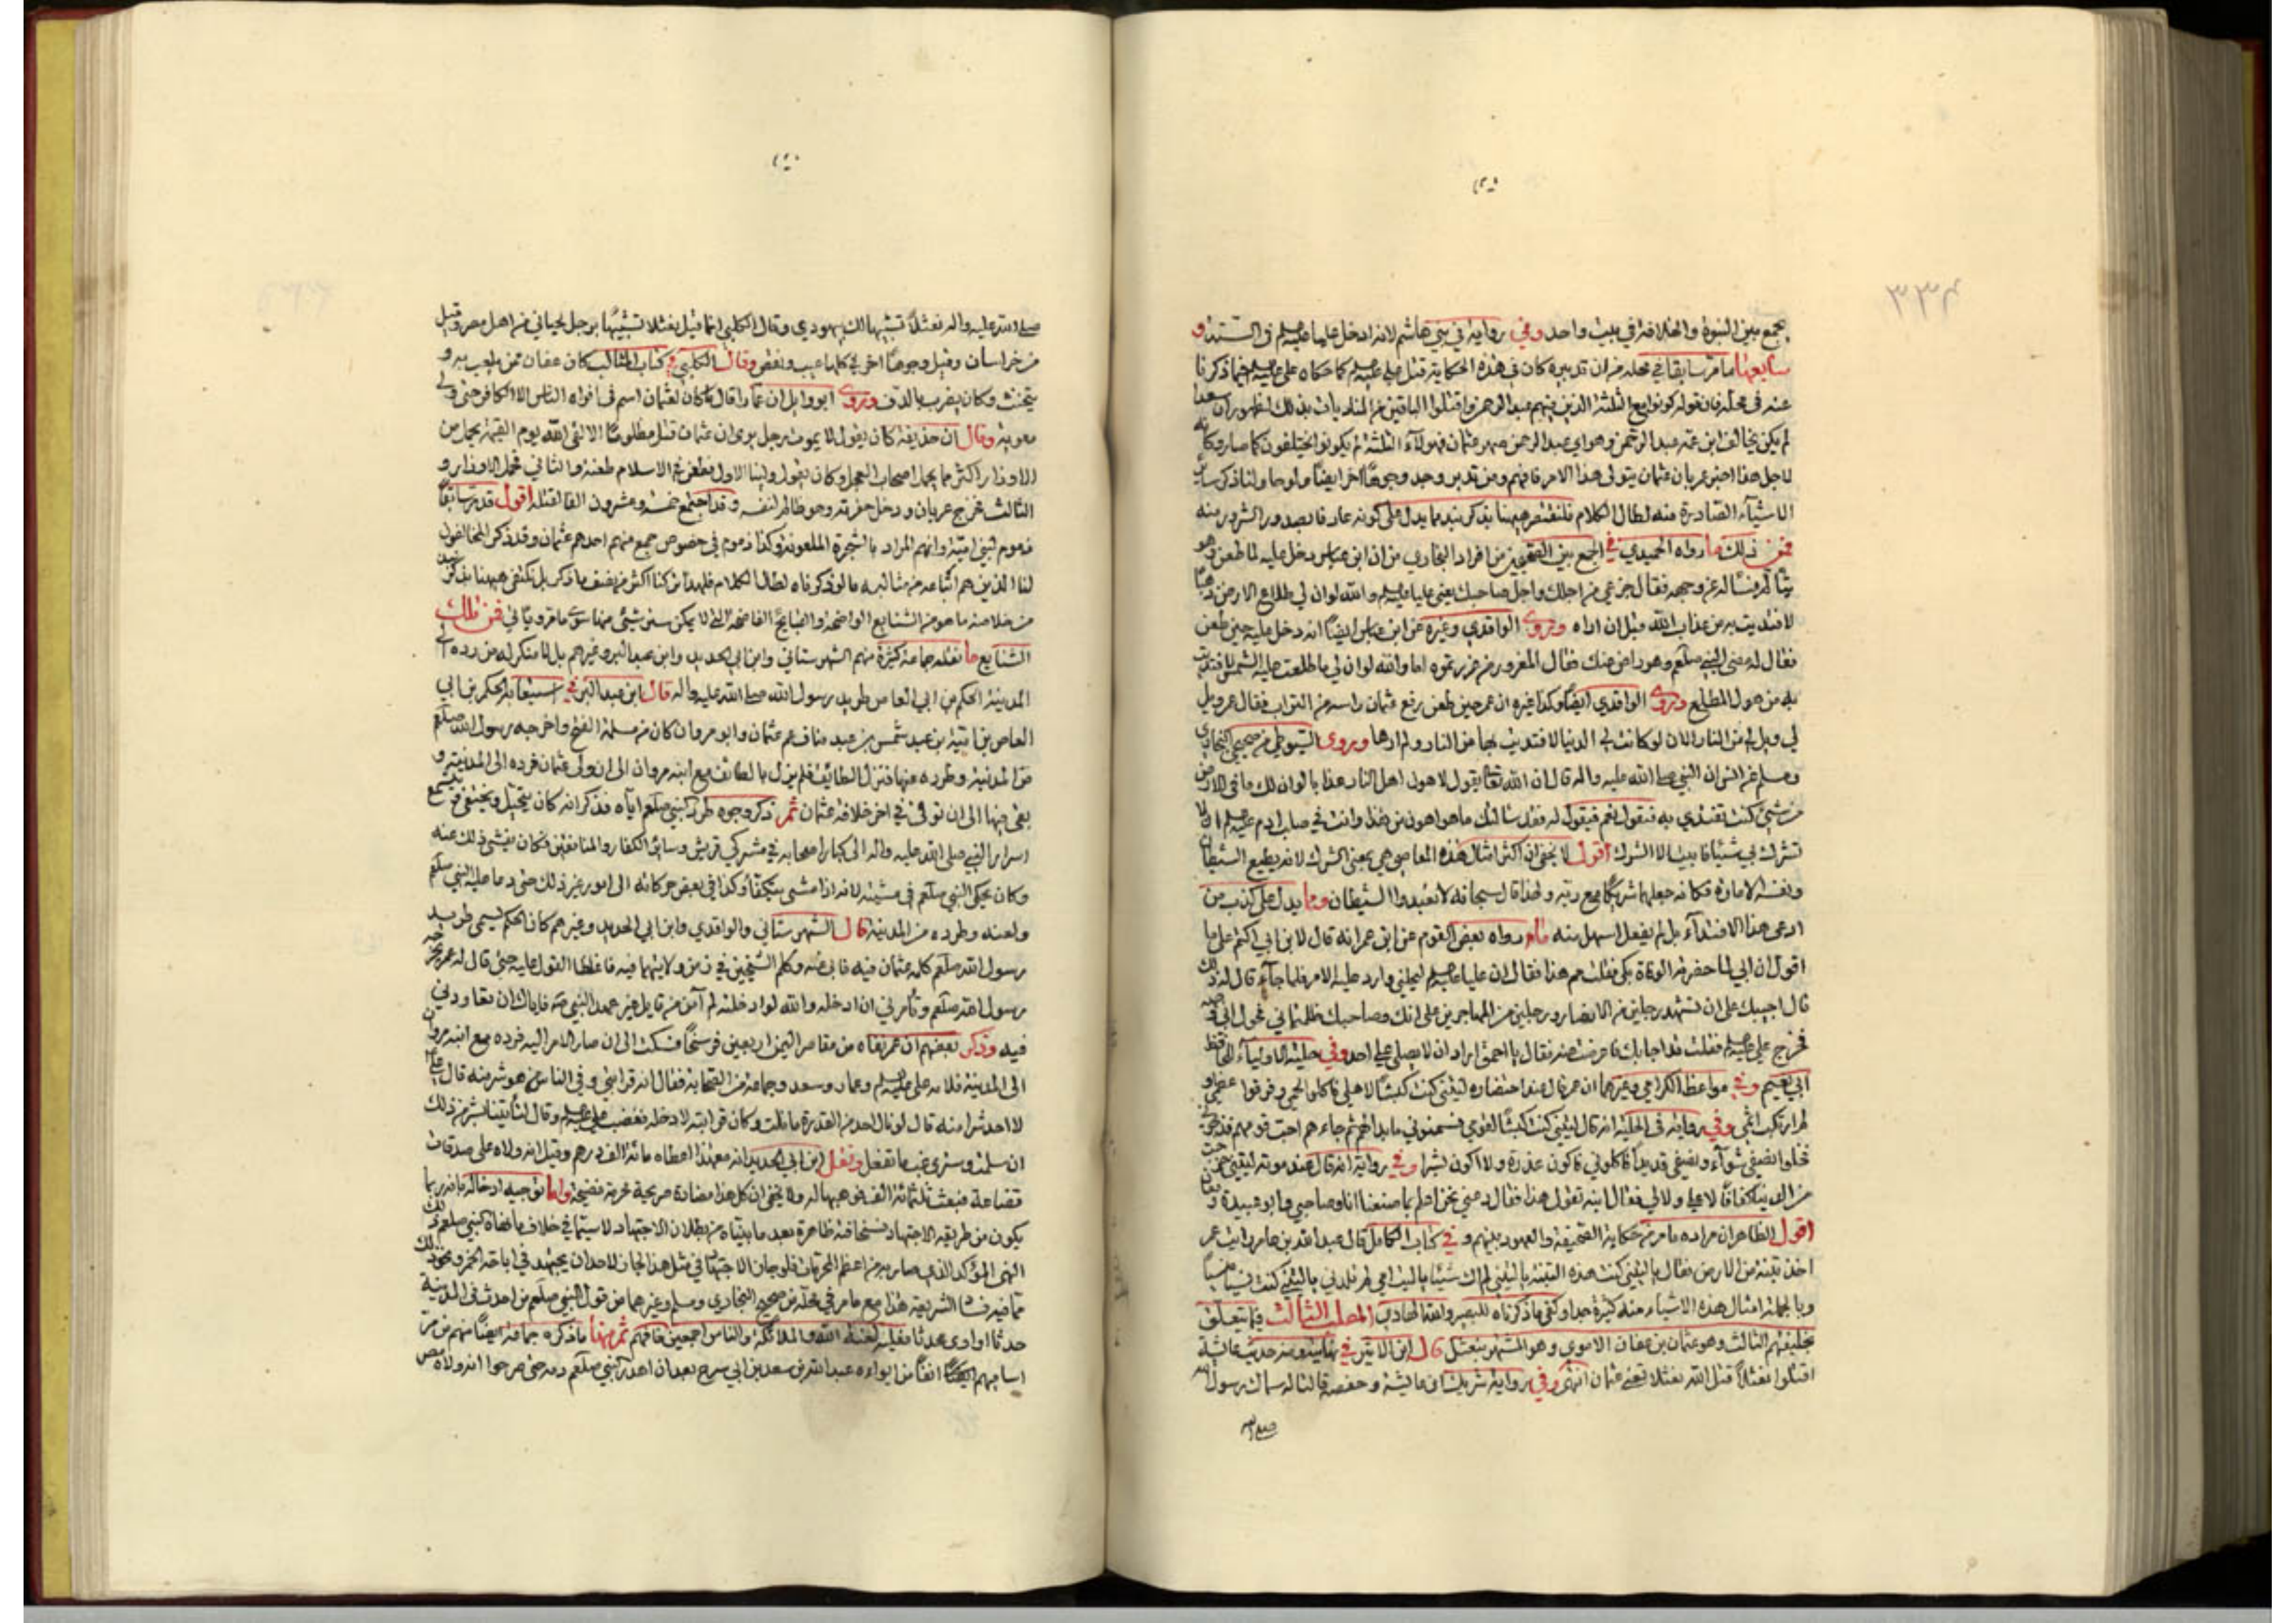 ٣٣٤
يجمع بين النبوة والخلافة في بيت واحد وفي رواية في بني هاشم لانه ادخل عليا في الستة و
سابعها ما مر سابقا في محله من ان تدبيره كان في هذه الحكاية قتل علي كما حكاه علي فيما ذكرنا
عنه في محله فان قوله كونوا مع الثلثة الذين فيهم عبد الرحمن واقتلوا الباقين بذلك لظهور ان سعدا
لم يكن يخالف ابن عمه عبد الرحمن وهو اي عبد الرحمن صهر عثمان فهؤلاء الثلثة لم يكونوا يختلفون كما صار وكانه
لاجل هذا اخبر عمر بان عثمان يتولى هذا الامر فافهم ومن تدبر وجد وجوها اخر ايضا ولو حاولنا ذكر ساير
الاشياء الصادرة منه لطال الكلام فلنقتصر ههنا بذكر نبذ مما يدل على كونه عارفا بصدور الشرور منه
فمن ذلك ما رواه الحميدي في الجمع بين الصحيحين من افراد البخاري من ان ابن عباس دخل عليه لما طعن وهو
يتألم فقال جزعي من اجلك واجل صاحبك يعني عليا والله لو ان لي طلاع الارض ذهبا
لافتديت به من عذاب الله قبل ان اراه وروى الواقدي وغيره عن ابن عباس ايضا انه دخل عليه حين طعن
فقال له مضى النبي صلعم وهو راض عنك فقال المغرور من غررتموه اما والله لو ان لي ما طلعت عليه الشمس لافتديت
به من هول المطلع وروى الواقدي ايضا وكذا غيره ان عمر حين طعن رفع عثمان راسه من التراب فقال عمر ويل
لي ويل لي من النار الان لو كانت لي الدنيا لافتديت بها من النار ولم ارها وروى السيوطي من صحيحي البخاري
ومسلم عن انس ان النبي صلى الله عليه واله قال ان الله تعالى يقول لاهون اهل النار عذابا لو ان لك ما في الارض
من شيء كنت تفتدي به فيقول نعم فيقول له فقد سالتك ما هو اهون من هذا وانت في صلب ادم ان لا
تشرك بي شيئا فابيت الا الشرك اقول لا يخفى ان اكثر امثال هذه المعاصي هي بمعنى الشرك لانه يطيع الشيطان
ونفسه الامارة فكانه جعلهما شريكا مع ربه ولهذا قال سبحانه لا تعبدوا الشيطان ومما يدل على كذب من
ادعى هذا الافتداء بل لم يفعل اسهل منه ما رواه بعض القوم عن ابن عمر انه قال لابن ابي بكر على ما
اقول ان ابي لما حضرته الوفاة بكى فقلت مم هذا فقال ان عليا يحلني وارد عليه الامر فلما جاء قال له ذلك
قال اجيبك على ان تشهد رجلين من الانصار ورجلين من المهاجرين على انك وصاحبك ظلمتماني فحول ابي وجهه
فخرج علي فقلت قد اجابك فاعرضت عنه فقال يا احمق اراد ان لا يصلي علي احد وفي حلية الاولياء للحافظ
ابي نعيم وفي مواعظ الكرامي وغيرهما ان عمر قال عند احتضاره ليتني كنت كبشا لاهلي فاكلوا لحمي وفرقوا عظمي و
لم ارتكب اثمي وفي رواية في الحلية انه قال ليتني كنت كبشا لقومي فسمنوني ما بدا لهم ثم جاءهم احب قومهم فذبحوني
فجعلوا نصفي شواء ونصفي قديدا فاكلوني فاكون عذرة ولا اكون بشرا وفي رواية انه قال عند موته ليتني خرجت
من الدنيا كفافا لا علي ولا لي فقال ابنه تقول هذا فقال دعني نحن اعلم بما صنعنا انا وصاحبي وابو عبيدة
اقول الظاهر ان مراده ما مر من حكاية الصحيفة والعهود بينهم وفي كتاب الكامل قال عبد الله بن عامر رايت عمر
اخذ تبنة من الارض فقال يا ليتني كنت هذه التبنة يا ليتني لم اك شيئا يا ليت امي لم تلدني يا ليتني كنت نسيا منسيا
وبالجملة امثال هذه الاشياء منه كثيرة جدا وكفى ما ذكرناه للبصير والله الهادي المطلب الثالث فيما يتعلق
بخليفتهم الثالث وهو عثمان بن عفان الاموي وهو المشهور بنعثل قال ابن الاثير في نهايته ومنه حديث عائشة
اقتلوا نعثلا قتل الله نعثلا تعني عثمان انتهى وفي رواية شريك ان عايشة وحفصة قالتا له سماك رسول الله
صلى الله
صلى الله عليه واله نعثلا تشبيها لك بيهودي وقال الكلبي انما قيل نعثلا تشبيها برجل لحياني من اهل مصر وقيل
من خراسان وقيل وجوها اخر في كلها عيب ونقص وقال الكلبي في كتاب المثالب كان عفان ممن يلعب به و
يتخنث وكان يضرب بالدف وروى ابو وايل ان عمارا قال ما كان لعثمان اسم في افواه الناس الا الكافر حتى ولي
معوية وقال ان حذيفة كان يقول لا يموت رجل يرى ان عثمان قتل مظلوما الا لقي الله يوم القيمة يحمل من
الاوزار اكثر مما يحمل اصحاب العجل وكان يقول ولينا الاول فطعن في الاسلام طعنة والثاني فحمل الاوزار و
الثالث فخرج عريان ودخل حفرته وهو ظالم لنفسه وقد اجتمع خمسة وعشرون الفا لقتله اقول قد مر سابقا
ذموم لبني امية وانهم المراد بالشجرة الملعونة وكذا ذموم في خصوص جمع منهم احدهم عثمان وقد ذكر المخالفون
لنا الذين هم اتباعه من مثالبه ما لو ذكرناه لطال الكلام فلهذا تركنا اكثر من نصف ما ذكر بل نكتفي ههنا بذكر
من خلاصة ما هو من الشنايع الواضحة والقبايح الفاضحة التي لا يمكن ستر شيء منها سوى ما مر وياتي فمن تلك
الشنايع ما نقله جماعة كثيرة منهم الشهرستاني وابن ابي الحديد وابن عبد البر وغيرهم بل لا منكر له من رده الى
المدينة الحكم بن ابي العاص طريد رسول الله صلى الله عليه واله قال ابن عبد البر في استيعابه الحكم بن ابي
العاص بن امية بن عبد شمس بن عبد مناف عم عثمان وابو مروان كان من مسلمة الفتح واخرجه رسول الله صلعم
من المدينة وطرده عنها فنزل الطائف فلم يزل بالطائف مع ابنه مروان الى ان ولى عثمان فرده الى المدينة و
بقي فيها الى ان توفي في اخر خلافة عثمان ثم ذكر وجوه طرد النبي صلعم اياه فذكر انه كان يتحيل ويختفي ويتسمع
اسرار النبي صلى الله عليه واله الى كبار اصحابه في مشركي قريش وسائر الكفار والمنافقين فكان يفشي ذلك عنه
وكان يحكي النبي صلعم في مشيته لانه اذا مشى يتكفا وكذا في بعض حركاته الى امور غير ذلك حتى دعا عليه النبي صلعم
ولعنه وطرده من المدينة قال الشهرستاني والواقدي وابن ابي الحديد وغيرهم كان الحكم يسمى طريد
رسول الله صلعم كلمه عثمان فيه فابى عنه وكلم الشيخين في زمن ولايتهما فيه فاغلظا القول عليه حتى قال له عمر يخرجه
رسول الله صلعم وتأمرني ان ادخله والله لو ادخلته لم آمن من قايل غير عهد النبي فاياك ان تعاودني
فيه وذكر بعضهم ان عمر نفاه من مقامه اليمن اربعين فرسخا فسكت الى ان صار الامر اليه فرده مع ابنه مروان
الى المدينة فلامه علي وعمار وسعد وجماعة من الصحابة فقال انه قرابتي وفي الناس من هو شر منه قال علي
لا احد شرا منه قال لو نال احد من القدرة ما نلت وكان قرابته لادخله فغضب علي وقال لتأتينا بشر من ذلك
ان سلمت وسترى غب ما تفعل ونقل ابن ابي الحديد انه مع هذا اعطاه مائة الف درهم وقيل انه ولاه على صدقات
قضاعة فبلغت ثلثمائة الف فوهبها له ولا يخفى ان كل هذا مضادة صريحية مخزية فضيحة واما توجيه ادخاله بانه ربما
يكون من طريقه الاجتهاد فسخافته ظاهرة بعد ما بيناه من بطلان الاجتهاد لا سيما في خلاف ما فعله النبي صلعم وذلك
النهي المؤكد الذي صار به من اعظم المحرمات فلو جاز الاجتهاد في مثل هذا لجاز لاحد ان يجتهد في اباحة الخمر ونحو ذلك
مما فيه فساد الشريعة هذا مع ما مر في محله من صحيح البخاري ومسلم وغيرهما من قول النبي صلعم من احدث في المدينة
حدثا او اوى محدثا فعليه لعنة الله والملائكة والناس اجمعين فافهم ثم منها ما ذكره جماعة ايضا منهم من مر
اساميهم انفا من ايواءه عبد الله بن سعد بن ابي سرح بعد ان اهدر النبي صلعم دمه حتى صرحوا انه ولاه مصر